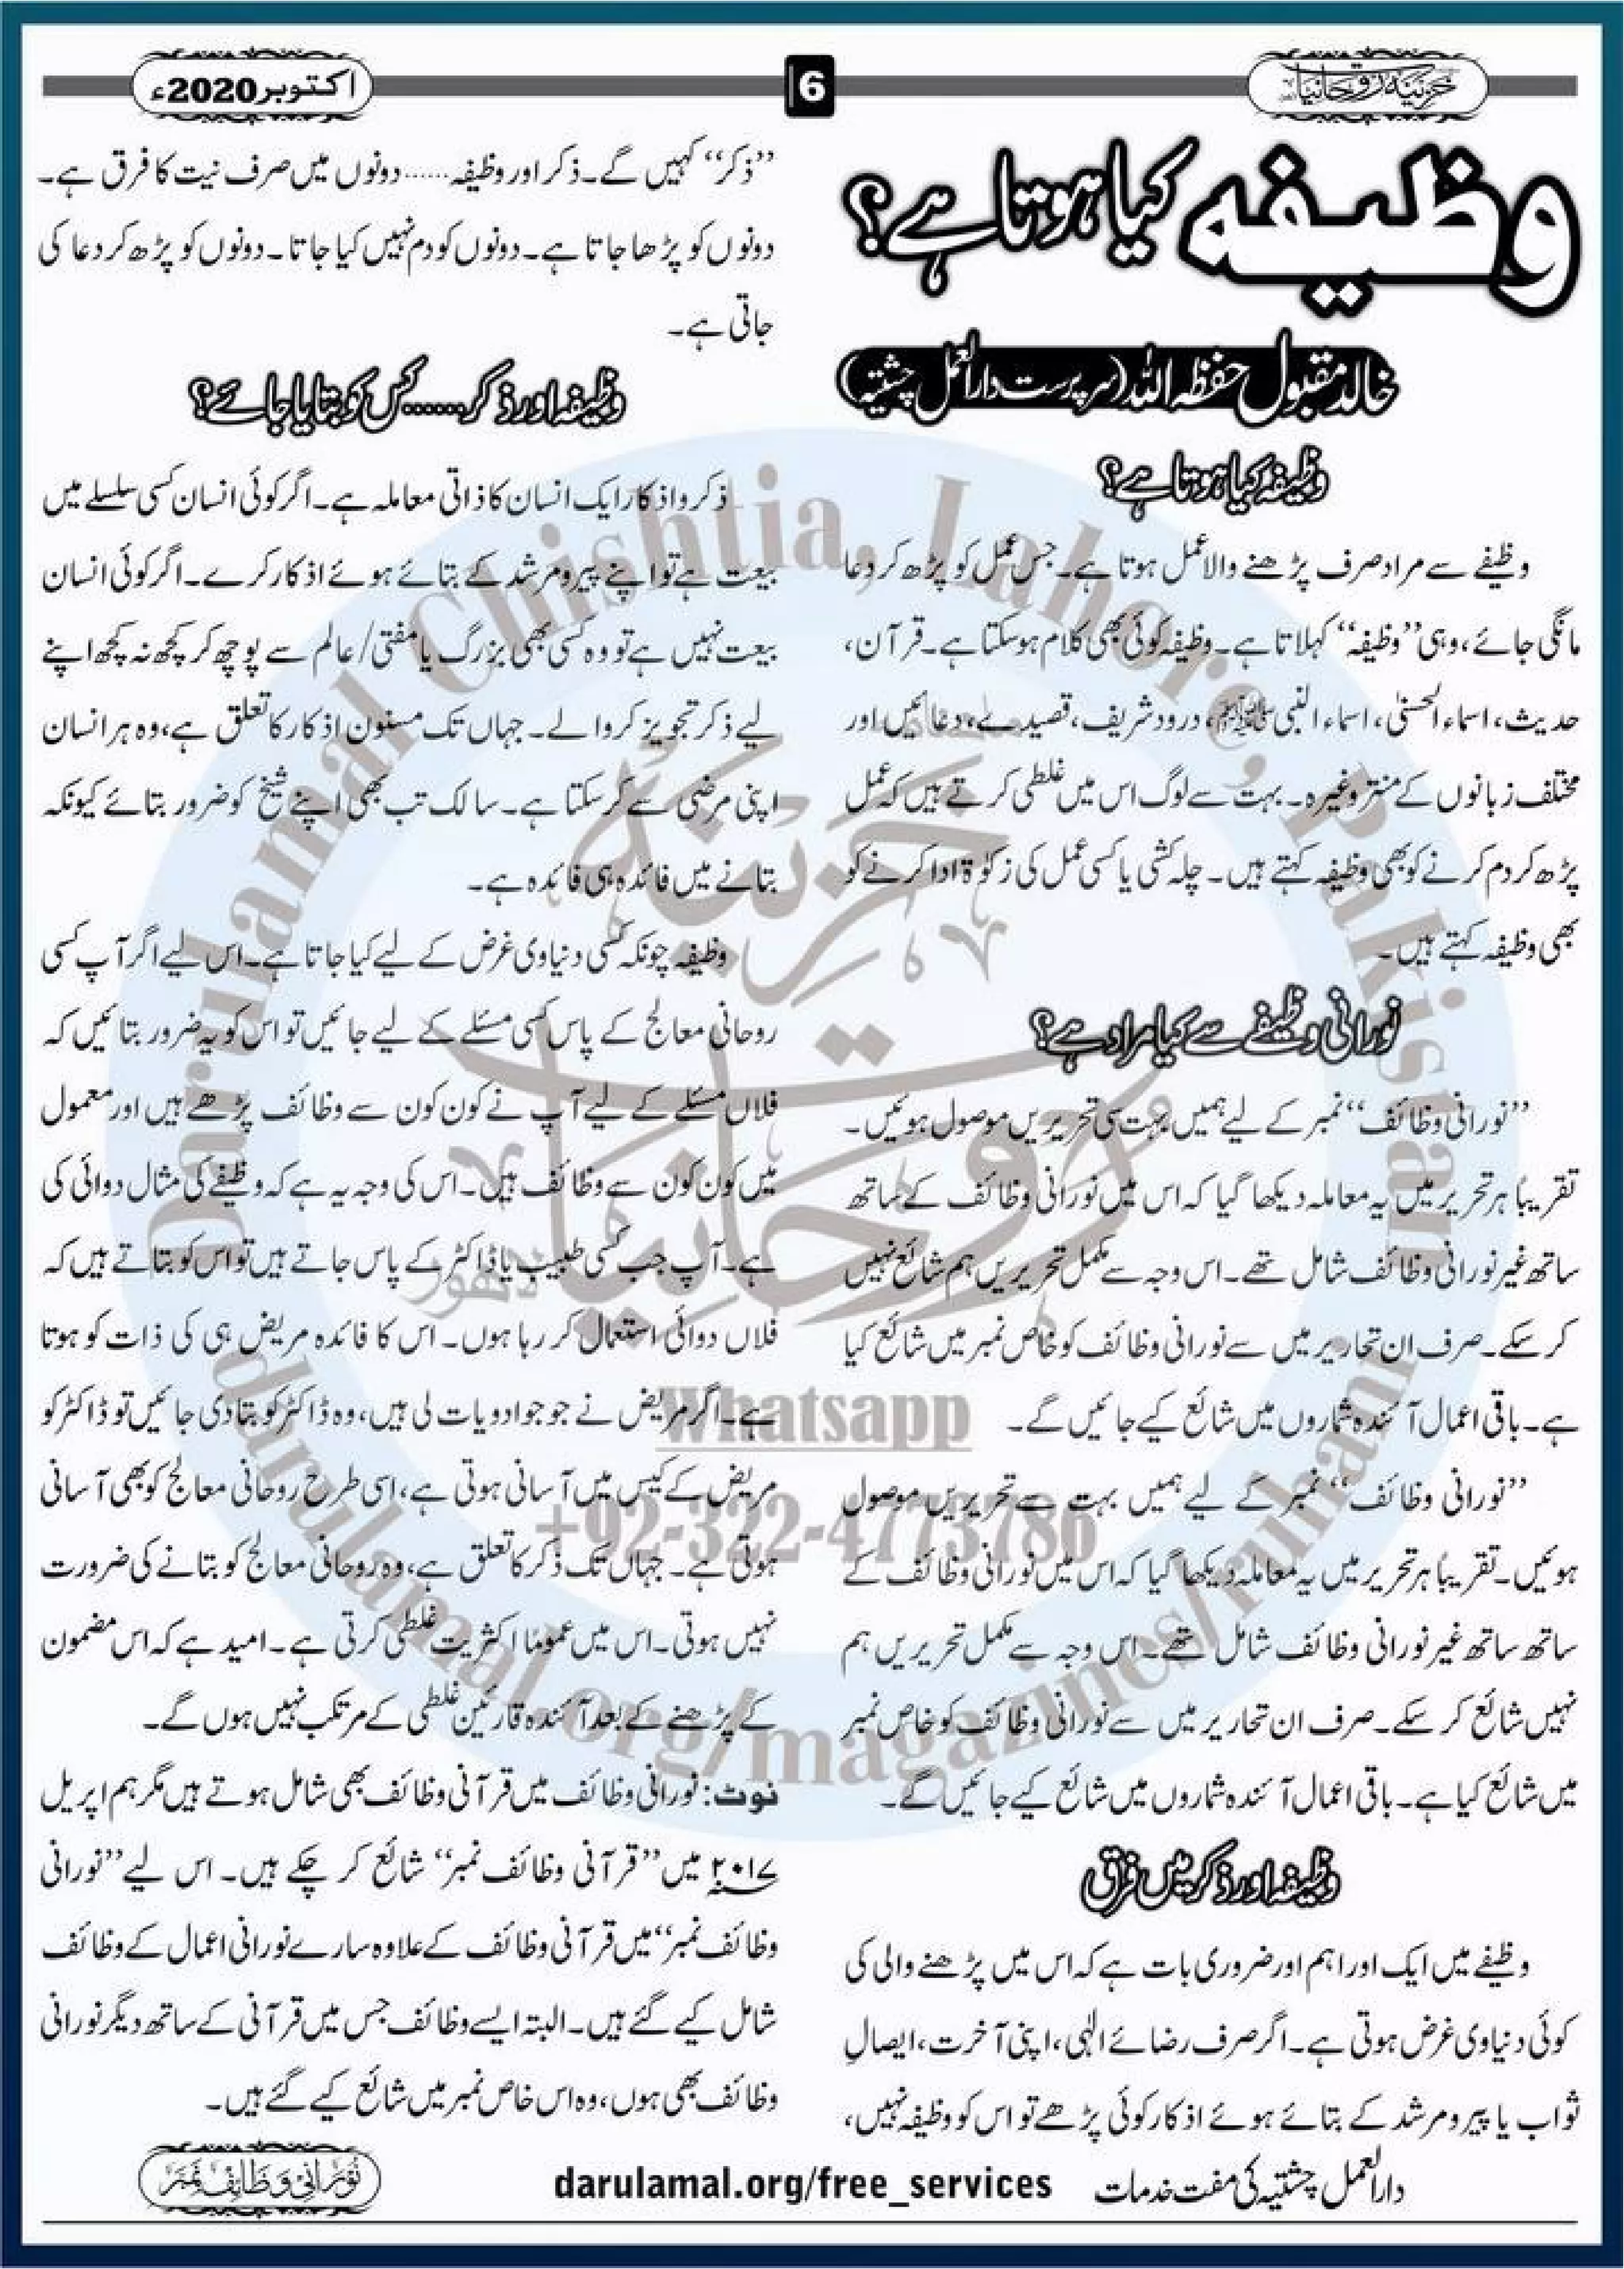 خزینۂ روحانیات
6
اکتوبر 2020ء
وظیفہ کیا ہوتا ہے؟
خالد مقبول حفظہ اللہ (سرپرست دارالعمل چشتیہ)
وظیفہ کیا ہوتا ہے؟
وظیفے سے مراد صرف پڑھنے والا عمل ہوتا ہے۔ جس عمل کو پڑھ کر دعا
مانگی جائے، وہی ’’وظیفہ‘‘ کہلاتا ہے۔ وظیفہ کوئی بھی کلام ہوسکتا ہے۔ قرآن،
حدیث، اسماء الحسنیٰ، اسماء النبی ﷺ، درود شریف، قصیدے، دعائیں اور
مختلف زبانوں کے منتر وغیرہ۔ بہت سے لوگ اس میں غلطی کرتے ہیں کہ عمل
پڑھ کر دم کرنے کو بھی وظیفہ کہتے ہیں۔ چلہ کشی یا کسی عمل کی زکوٰۃ ادا کرنے کو
بھی وظیفہ کہتے ہیں۔
نورانی وظیفے سے کیا مراد ہے؟
’’نورانی وظائف‘‘ نمبر کے لیے ہمیں بہت سی تحریریں موصول ہوئیں۔
تقریباً ہر تحریر میں یہ معاملہ دیکھا گیا کہ اس میں نورانی وظائف کے ساتھ
ساتھ غیر نورانی وظائف شامل تھے۔ اس وجہ سے مکمل تحریریں ہم شائع نہیں
کرسکے۔ صرف ان تحاریر میں سے نورانی وظائف کو خاص نمبر میں شائع کیا
ہے۔ باقی اعمال آئندہ شماروں میں شائع کیے جائیں گے۔
’’نورانی وظائف‘‘ نمبر کے لیے ہمیں بہت سے تحریریں موصول
ہوئیں۔ تقریباً ہر تحریر میں یہ معاملہ دیکھا گیا کہ اس میں نورانی وظائف کے
ساتھ ساتھ غیر نورانی وظائف شامل تھے۔ اس وجہ سے مکمل تحریریں ہم
نہیں شائع کرسکے۔ صرف ان تحاریر میں سے نورانی وظائف کو خاص نمبر
میں شائع کیا ہے۔ باقی اعمال آئندہ شماروں میں شائع کیے جائیں گے۔
وظیفہ اور ذکر میں فرق
وظیفے میں ایک اور اہم اور ضروری بات ہے کہ اس میں پڑھنے والی کی
کوئی دنیاوی غرض ہوتی ہے۔ اگر صرف رضائے الٰہی، اپنی آخرت، ایصالِ
ثواب یا پیر و مرشد کے بتائے ہوئے اذکار کوئی پڑھے تو اس کو وظیفہ نہیں،
’’ذکر‘‘ کہیں گے۔ ذکر اور وظیفہ...... دونوں میں صرف نیت کا فرق ہے۔
دونوں کو پڑھا جاتا ہے۔ دونوں کو دم نہیں کیا جاتا۔ دونوں کو پڑھ کر دعا کی
جاتی ہے۔
وظیفہ اور ذکر...... کس کو بتایا جائے؟
ذکر و اذکار ایک انسان کا ذاتی معاملہ ہے۔ اگر کوئی انسان کسی سلسلے میں
بیعت ہے تو اپنے پیر و مرشد کے بتائے ہوئے اذکار کرے۔ اگر کوئی انسان
بیعت نہیں ہے تو وہ کسی بھی بزرگ یا مفتی/عالم سے پوچھ کر کچھ نہ کچھ اپنے
لیے ذکر تجویز کروالے۔ جہاں تک مسنون اذکار کا تعلق ہے، وہ ہر انسان
اپنی مرضی سے کرسکتا ہے۔ سالک تب بھی اپنے شیخ کو ضرور بتائے کیونکہ
بتانے میں فائدہ ہی فائدہ ہے۔
وظیفہ چونکہ کسی دنیاوی غرض کے لیے کیا جاتا ہے۔ اس لیے اگر آپ کسی
روحانی معالج کے پاس کسی مسئلے کے لیے جائیں تو اس کو یہ ضرور بتائیں کہ
فلاں مسئلے کے لیے آپ نے کون کون سے وظائف پڑھے ہیں اور معمول
میں کون کون سے وظائف ہیں۔ اس کی وجہ یہ ہے کہ وظیفے کی مثال دوائی کی
ہے۔ آپ جب کسی طبیب یا ڈاکٹر کے پاس جاتے ہیں تو اس کو بتاتے ہیں کہ
فلاں دوائی استعمال کر رہا ہوں۔ اس کا فائدہ مریض ہی کی ذات کو ہوتا
ہے۔ اگر مریض نے جو جو ادویات لی ہیں، وہ ڈاکٹر کو بتادی جائیں تو ڈاکٹر کو
مریض کے کیس میں آسانی ہوتی ہے، اسی طرح روحانی معالج کو بھی آسانی
ہوتی ہے۔ جہاں تک ذکر کا تعلق ہے، وہ روحانی معالج کو بتانے کی ضرورت
نہیں ہوتی۔ اس میں عموماً اکثریت غلطی کرتی ہے۔ امید ہے کہ اس مضمون
کے پڑھنے کے بعد آئندہ قارئین غلطی کے مرتکب نہیں ہوں گے۔
نوٹ: نورانی وظائف میں قرآنی وظائف بھی شامل ہوتے ہیں مگر ہم اپریل
۲۰۱۷؁ میں ’’قرآنی وظائف نمبر‘‘ شائع کرچکے ہیں۔ اس لیے ’’نورانی
وظائف نمبر‘‘ میں قرآنی وظائف کے علاوہ سارے نورانی اعمال کے وظائف
شامل کیے گئے ہیں۔ البتہ ایسے وظائف جس میں قرآنی کے ساتھ دیگر نورانی
وظائف بھی ہوں، وہ اس خاص نمبر میں شائع کیے گئے ہیں۔
دارالعمل چشتیہ کی مفت خدمات darulamal.org/free_services
نورانی وظائف نمبر
Darulamal Chishtia, Lahore, Pakistan
خزینۂ روحانیات
لاہور
Whatsapp
+92-322-4773786
darulamal.org/magazines/ruhani